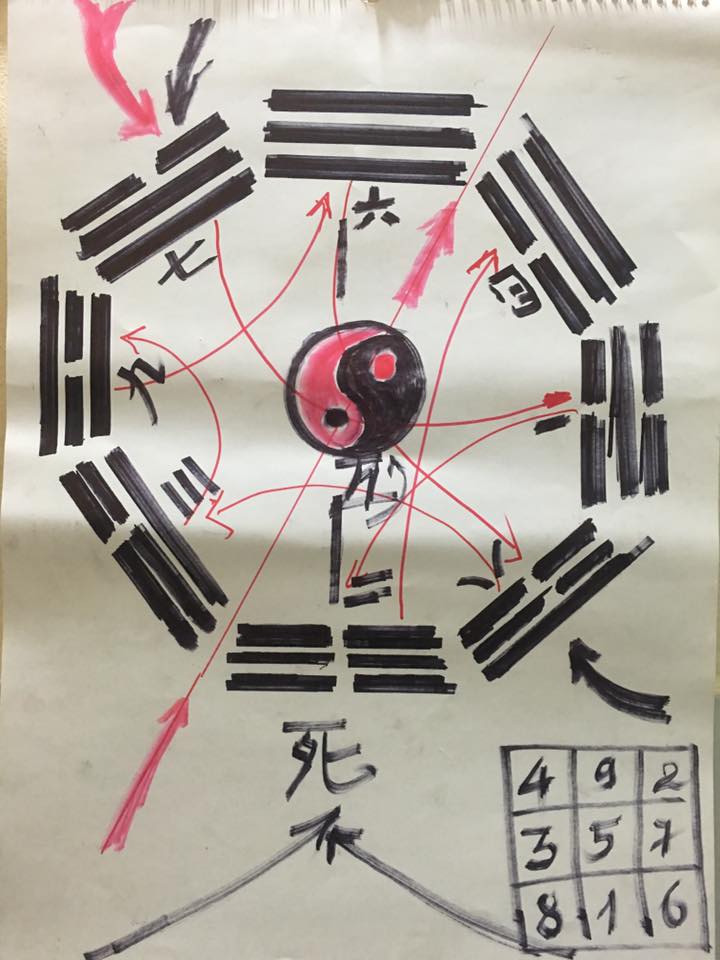 六
七
四
九
一
三
五
八
二
死
4 9 2
3 5 7
8 1 6